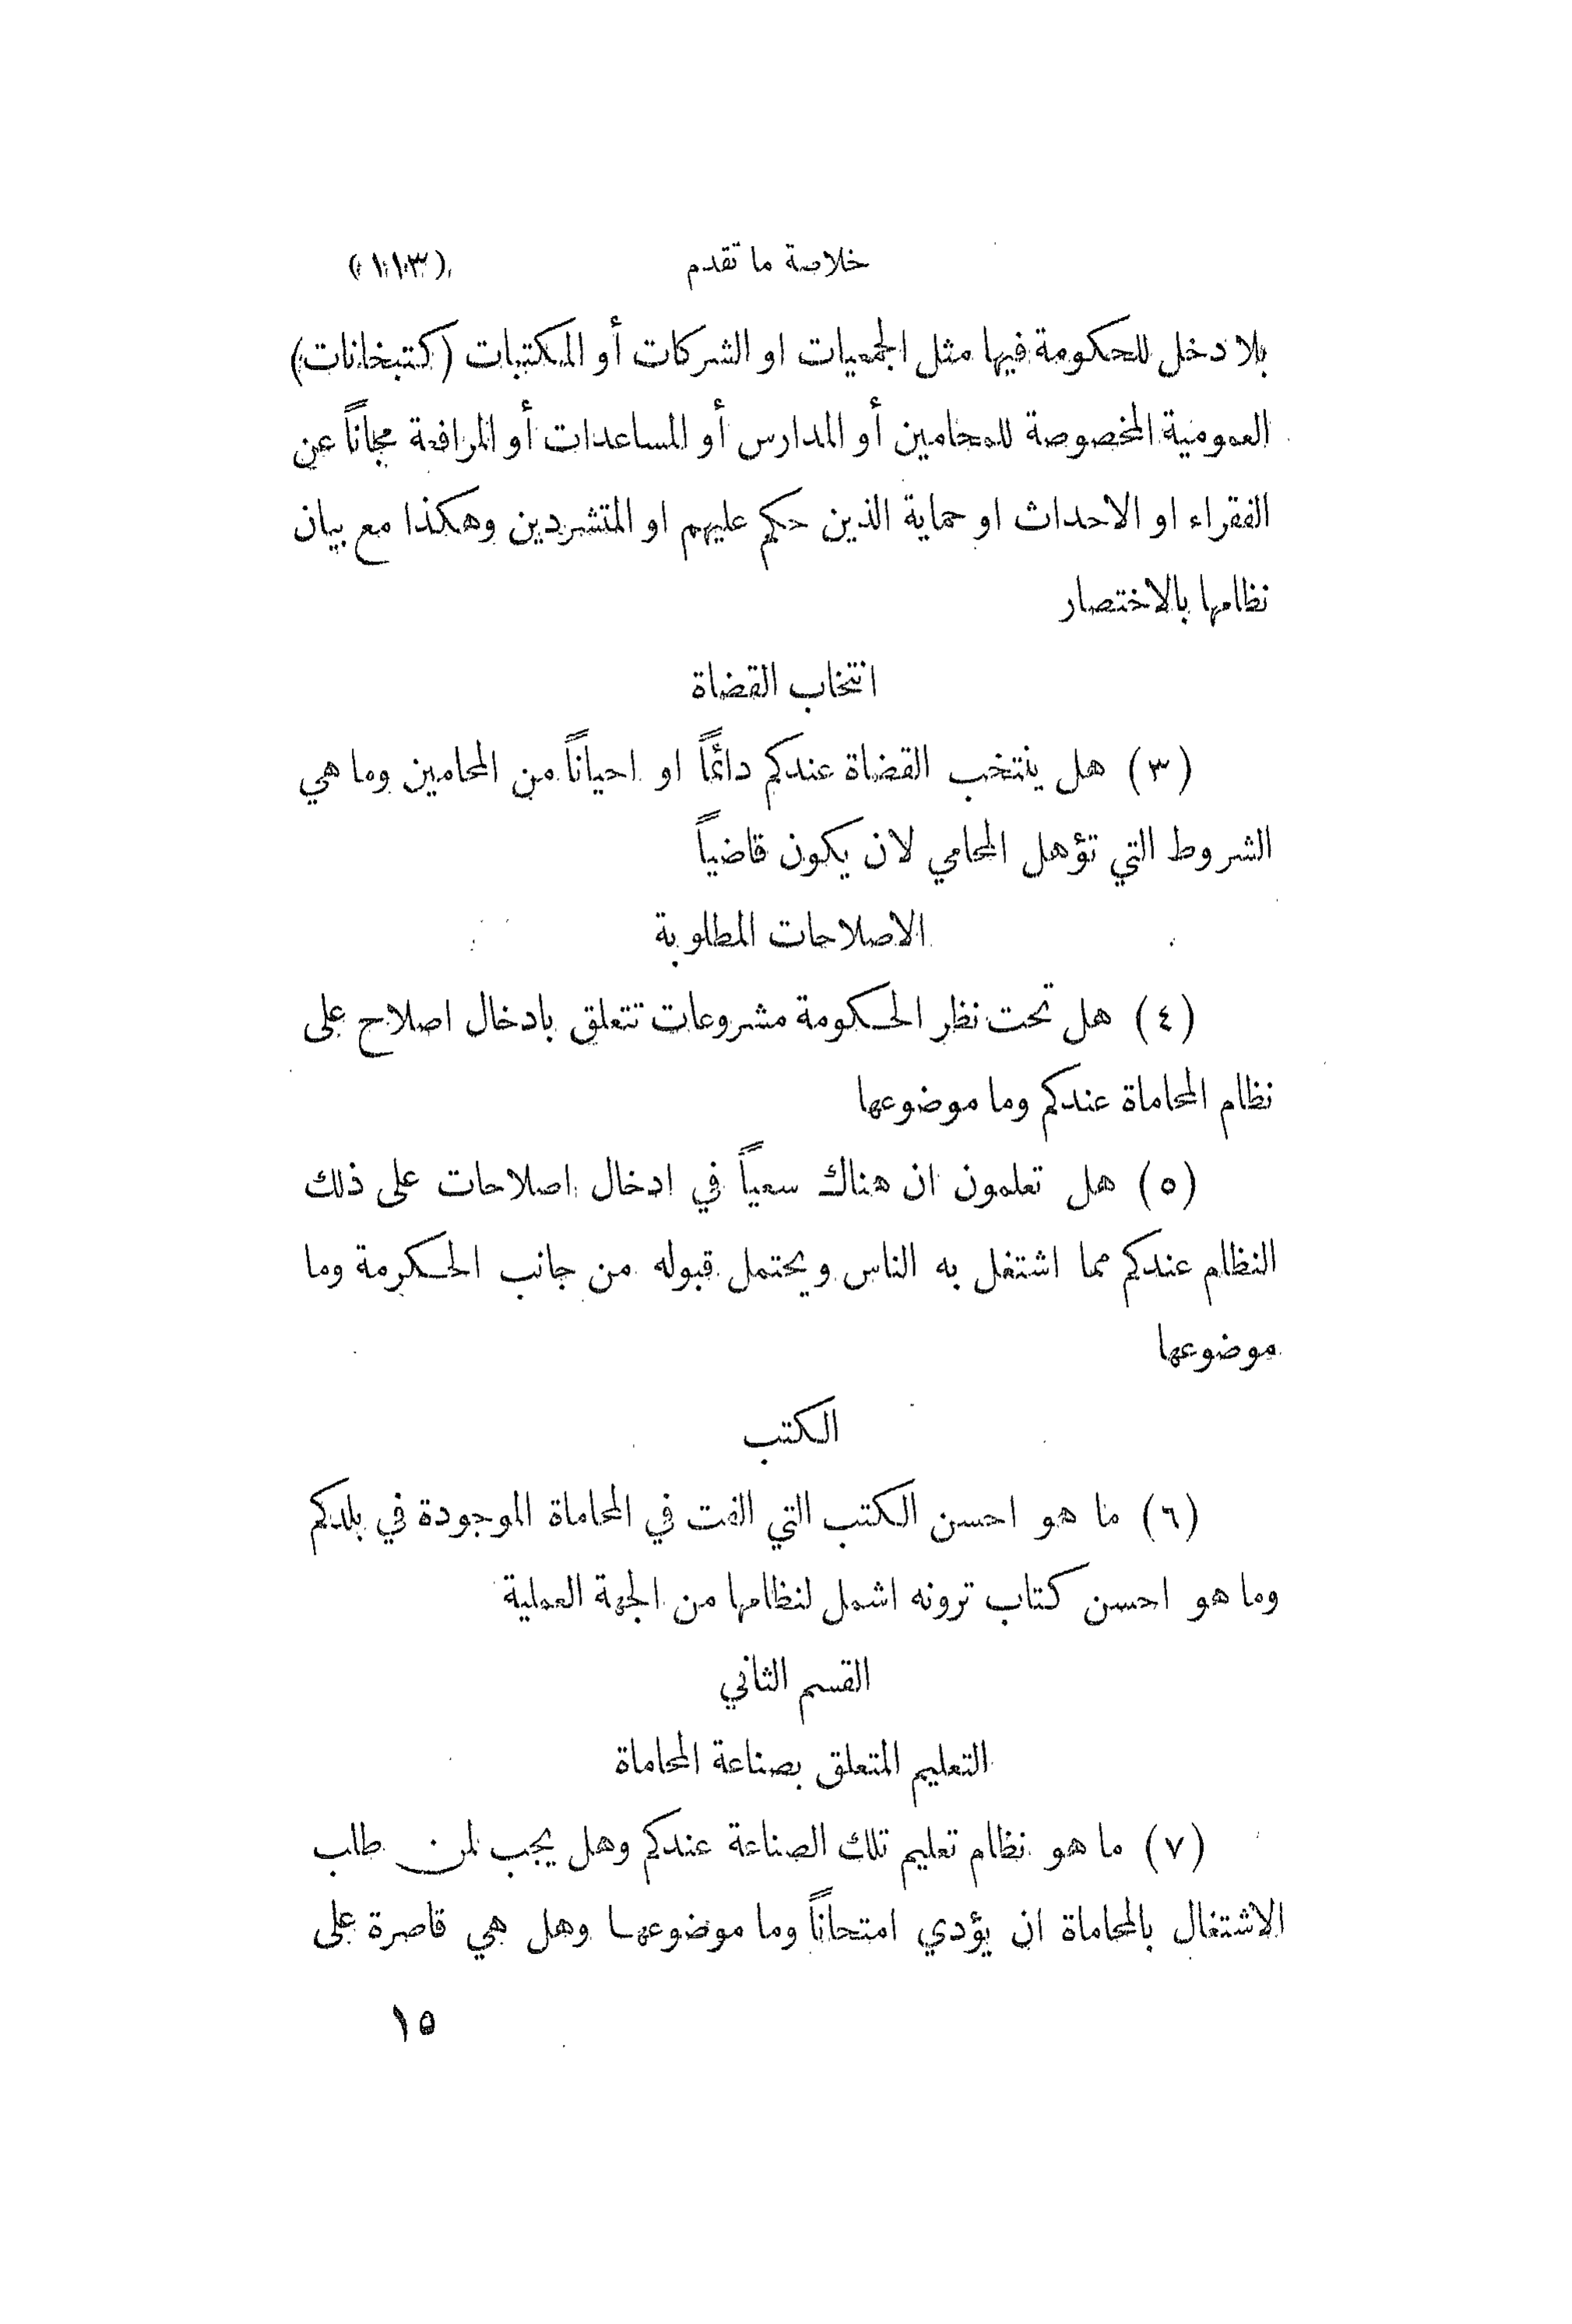 خلاصة ما تقدم (١١٣)
بلا دخل للحكومة فيها مثل الجمعيات او الشركات أو المكتبات (كتبخانات)
العمومية المخصوصة للمحامين أو المدارس أو المساعدات أو المرافعة مجاناً عن
الفقراء او الاحداث او حماية الذين حكم عليهم او المتشردين وهكذا مع بيان
نظامها بالاختصار
انتخاب القضاة
(٣) هل ينتخب القضاة عندكم دائماً او احياناً من المحامين وما هي
الشروط التي تؤهل المحامي لان يكون قاضياً
الاصلاحات المطلوبة
(٤) هل تحت نظر الحكومة مشروعات تتعلق بادخال اصلاح على
نظام المحاماة عندكم وما موضوعها
(٥) هل تعلمون ان هناك سعياً في ادخال اصلاحات على ذلك
النظام عندكم مما اشتغل به الناس ويحتمل قبوله من جانب الحكومة وما
موضوعها
الكتب
(٦) ما هو احسن الكتب التي الفت في المحاماة الموجودة في بلدكم
وما هو احسن كتاب ترونه اشمل لنظامها من الجهة العملية
القسم الثاني
التعليم المتعلق بصناعة المحاماة
(٧) ما هو نظام تعليم تلك الصناعة عندكم وهل يجب لمن طلب
الاشتغال بالمحاماة ان يؤدي امتحاناً وما موضوعها وهل هي قاصرة على
١٥